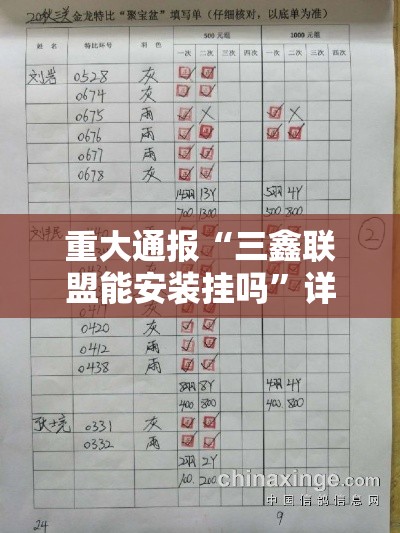 20秋三关 金龙特比“聚宝盆”填写单（仔细核对，以底单为准）
500 元组 1000 元组
姓名 特比环号 羽色 一次 二次 三次 四次 一次 二次 三次 四次
刘岩 0528 灰
0674 灰
0675 雨 X X
0676 雨
0677 雨
0678 灰
13Y 4Y
700 1300 500 800
2
重大通报“三鑫联
盟能安装挂吗”详
0420 灰
0412 雨
0438 雨
8羽 8Y 4羽 4Y
400 800 400 800
0331 灰
0332 雨
2羽 2Y
100 200
chinaxinge.com
中国信鸽信息网
24 9